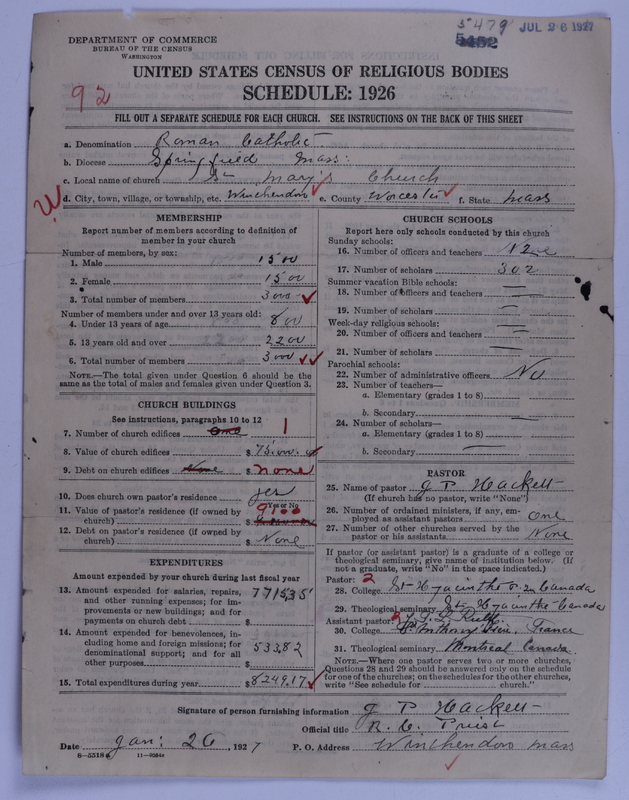 5479
5452
JUL 26 1927
DEPARTMENT OF COMMERCE
BUREAU OF THE CENSUS
WASHINGTON
92
UNITED STATES CENSUS OF RELIGIOUS BODIES
SCHEDULE: 1926
FILL OUT A SEPARATE SCHEDULE FOR EACH CHURCH. SEE INSTRUCTIONS ON THE BACK OF THIS SHEET
a. Denomination Roman Catholic
b. Diocese Springfield Mass:
c. Local name of church St Mary's Church
W
d. City, town, village, or township, etc. Winchendon e. County Worcester f. State Mass
MEMBERSHIP
Report number of members according to definition of
member in your church
Number of members, by sex:
1. Male 1500
2. Female 1500
3. Total number of members 3000
Number of members under and over 13 years old:
4. Under 13 years of age 800
5. 13 years old and over 2200
6. Total number of members 3000
NOTE.—The total given under Question 6 should be the
same as the total of males and females given under Question 3.
CHURCH BUILDINGS
See instructions, paragraphs 10 to 12
7. Number of church edifices One 1
8. Value of church edifices $ 75.000.
9. Debt on church edifices None $ none
10. Does church own pastor's residence yes
Yes or No
11. Value of pastor's residence (if owned by
church) $ 9100
12. Debt on pastor's residence (if owned by
church) $ None
EXPENDITURES
Amount expended by your church during last fiscal year
13. Amount expended for salaries, repairs,
and other running expenses; for im-
provements or new buildings; and for
payments on church debt $ 7715.35
14. Amount expended for benevolences, in-
cluding home and foreign missions; for
denominational support; and for all
other purposes $ 533.82
15. Total expenditures during year $ 8249.17
CHURCH SCHOOLS
Report here only schools conducted by this church
Sunday schools:
16. Number of officers and teachers
17. Number of scholars 302
Summer vacation Bible schools:
18. Number of officers and teachers —
19. Number of scholars —
Week-day religious schools:
20. Number of officers and teachers —
21. Number of scholars —
Parochial schools:
22. Number of administrative officers No
23. Number of teachers—
a. Elementary (grades 1 to 8)
b. Secondary —
24. Number of scholars—
a. Elementary (grades 1 to 8) —
b. Secondary —
PASTOR
25. Name of pastor J P Hackett
(If church has no pastor, write "None")
26. Number of ordained ministers, if any, em-
ployed as assistant pastors One
27. Number of other churches served by the
pastor or his assistants None
If pastor (or assistant pastor) is a graduate of a college or
theological seminary, give name of institution below. (If
not a graduate, write "No" in the space indicated.)
Pastor: 2
28. College St-Hyacinthe Canada
29. Theological seminary St-Hyacinthe-Canada
Assistant pastor: 2
30. College France
31. Theological seminary Montreal Canada.
NOTE.—Where one pastor serves two or more churches,
Questions 28 and 29 should be answered only on the schedule
for one of the churches; on the schedules for the other churches,
write "See schedule for church."
Signature of person furnishing information J P Hackett
Official title R. C. Priest
Date Jan: 26, 1927 P. O. Address Winchendon Mass
8—5518a 11—9554a